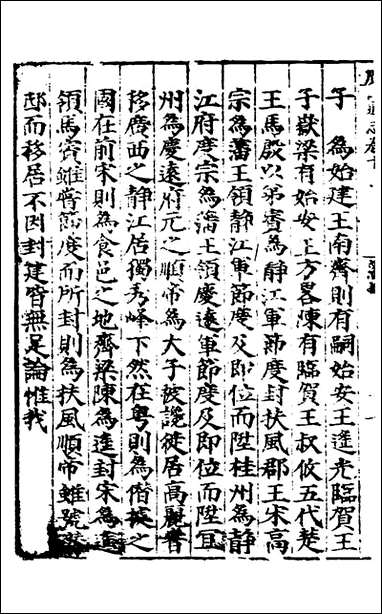 子 為始建王南齊則有嗣始安王遥光臨賀王
子嶽梁有始安王方畧陳有臨賀王叔攸五代楚
王馬殷以弟賓為靜江軍節度封扶風郡王宋高
宗為藩王領靜江軍節度及即位而陞桂州為靜
江府度宗為藩王領慶遠軍節度及即位而陞宜
州為慶遠府元之順帝為大子被讒徙居高麗嘗
移廣西之靜江居獨秀峰下然在粤則為僭據之
國在前宋則為食邑之地齊梁陳為遥封宋為遥
領馬賓雖嘗節度而所封則為扶風順帝雖號
邸而移居不因封建皆無足論惟我